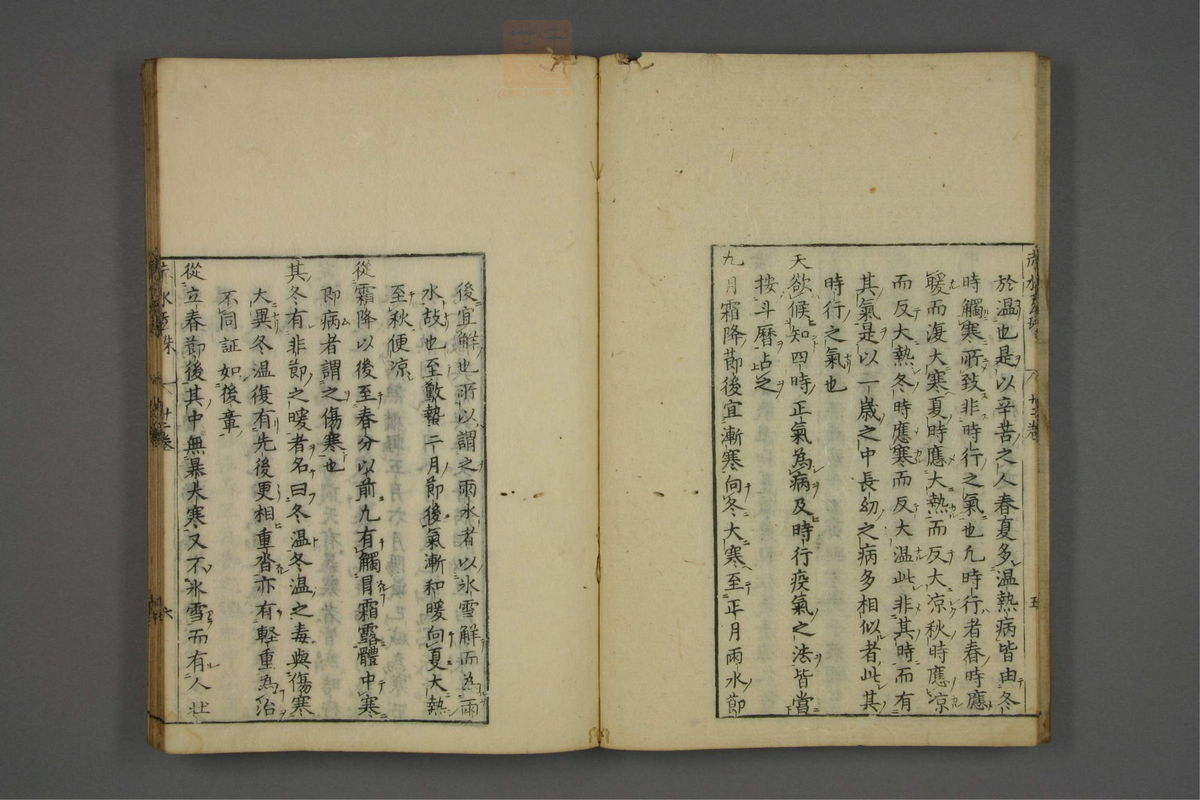 於温也是以辛苦之人春夏多温熱病皆由冬
時觸寒所致非時行之氣也凢時行者春時應
暖而復大寒夏時應大熱而反大凉秋時應凉
而反大熱冬時應寒而反大温此非其時而有
其氣是以一歳之中長幼之病多相似者此其
時行之氣也
天欲候知四時正氣為病及時行疫氣之法皆當
按斗曆占之
九月霜降節後宜漸寒向冬大寒至正月雨水節
五
後宜解也所以謂之雨水者以氷雪解而為雨
水故也至驚蟄二月節後氣漸和暖向夏大熱
至秋便凉
從霜降以後至春分以前凢有觸冒霜露體中寒
即病者謂之傷寒也
其冬有非節之暖者名曰冬温冬温之毒與傷寒
大異冬温復有先後更相重沓亦有軽重為治
不同証如後章
從立春節後其中無暴大寒又不氷雪而有人壮
水玄珠
廿二卷
六